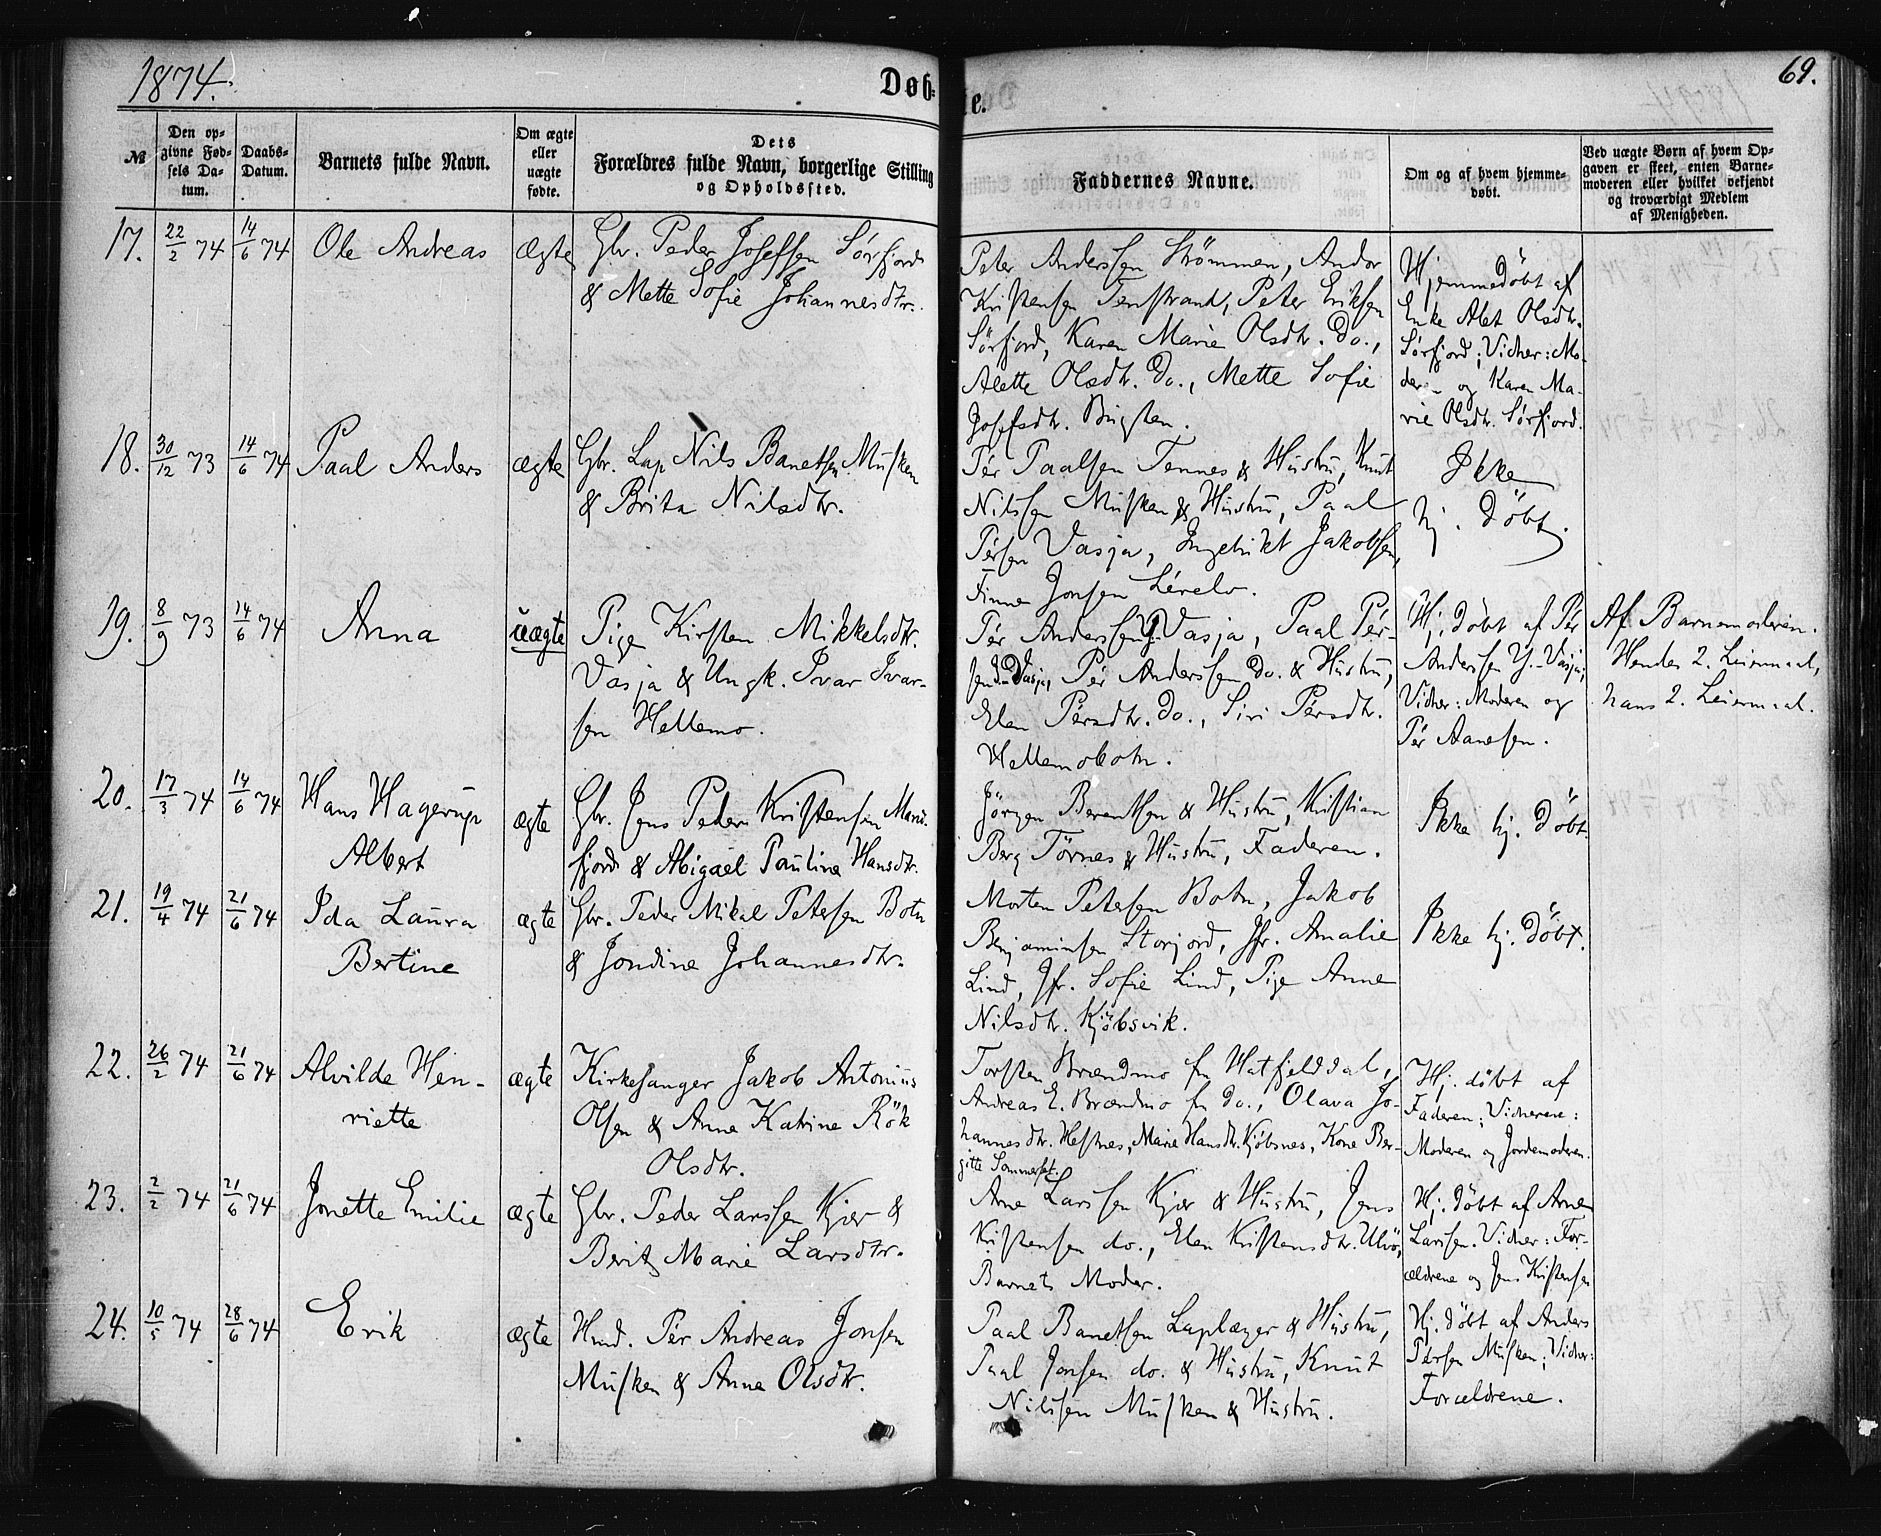 1874.
Døb-
e.
69.
№
Den op-
givne Fød-
sels Da-
tum.
Daabs-
Datum.
Barnets fulde Navn.
Om ægte
eller
uægte
fødte.
Dets
Forældres fulde Navn, borgerlige Stilling
og Opholdssted.
Faddernes Navne.
Om og af hvem hjemme-
døbt.
Ved uægte Børn af hvem Op-
gaven er skeet, enten Barne-
moderen eller hvilket bekjendt
og troværdigt Medlem
af Menigheden.
17.
22/2 74
14/6 74
Ole Andreas
Ægte
Gbr. Peder Josefsen Sørfjord
& Mette Sofie Johannesdtr.
Peter Anderssen Strömmen, Andor
Kristensen Tenstrand, Peter Eriksen
Sörfjord, Karen Marie Olsdtr. do.,
Alette Olsdtr. do., Mette Sofie
Josefsdtr.
Hjemmedöbt af
Enke Alet Olsdtr.
Sörfjord; Vidner: Mo-
deren og Karen Ma-
rie Olsdtr. Sörfjord.
18.
30/12 73
14/6 74
Paal Anders
ægte
Gbr. Lap Nils Banetsen Musken
& Brita Nilsdtr.
Pér Paalsen Tennes & Hustru, Knut
Nilssen Musken & Hustru, Paal
Pérsen Vasja, Ingebrikt Jakobsen,
Finn Jonsen
Ikke
hj. döbt.
19.
8/9 73
14/6 74
Anna
uægte
Pige Kirsten Mikkelsdtr.
Vasja & Ungk. Ivar Ivar-
sen Hellemo.
Pér Anderssen Y. Vasja, Paal Pér-
sen Vasja, Pér Anderssen do. & Hustru,
Elen Pérsdtr. do., Siri Pérsdtr.
Hellemobotn.
Hj. döbt af Pér
Anderssen Y. Vasja;
Vidner: Moderen og
Pér Aanesen.
Af Barnemoderen.
Hendes 2. Leiermaal,
hans 2. Leiermaal.
20.
17/3 74
14/6 74
Hans Hagerup
Albert
ægte
Gbr. Jens Peder Kristensen Mann-
fjord & Abigael Paulina Hansdtr.
Jörgen Berentsen & Hustru, Kristian
Berg Törnes & Hustru, Faderen.
Ikke hj. döbt.
21.
19/4 74
21/6 74
Ida Laura
Bertine
ægte
Gbr. Peder Mikal Petersen Botn
& Jondine Johannesdtr.
Morten Petersen Botn, Jakob
Benjaminsen Storjord, Jfr. Amalie
Lind, Jfr. Sofie Lind, Pige Anne
Nilsdtr. Kjöbsvik.
Ikke hj. döbt.
22.
26/2 74
21/6 74
Alvilde Hen-
riette
ægte
Kirkesanger Jakob Antonius
Olsen & Anne Katrine Rök
Olsdtr.
Torsten Brændmo fr Hatfjelddal,
Andreas E. Brændmo fr do., Olava Jo-
hannesdtr. Hestnes, Marie Hansdtr. Kjöbsnes, Kone Ber-
gitte Sommerset.
Hj. döbt af
Faderen; Vidnerne:
Moderen og Jordemoderen.
23.
2/2 74
21/6 74
Jonette Emilie
ægte
Gbr. Peder Larssen Kjær &
Berit Marie Larsdtr.
Arne Larssen Kjær & Hustru, Jens
Kristensen do., Elen Kristensdtr. Ulvö,
Barnets Moder.
Hj. döbt af Arne
Larssen. Vidner: For-
ældrene og Jens Kristensen
24.
10/5 74
28/6 74
Erik
ægte
Hmd. Pér Andreas Jonsen
Musken & Anne Olsdtr.
Paal Banetsen Laplæger & Hustru,
Paal Jonsen do. & Hustru, Knut
Nilssen Musken & Hustru.
Hj. döbt af Anders
Pérsen Musken; Vidner:
Forældrene.